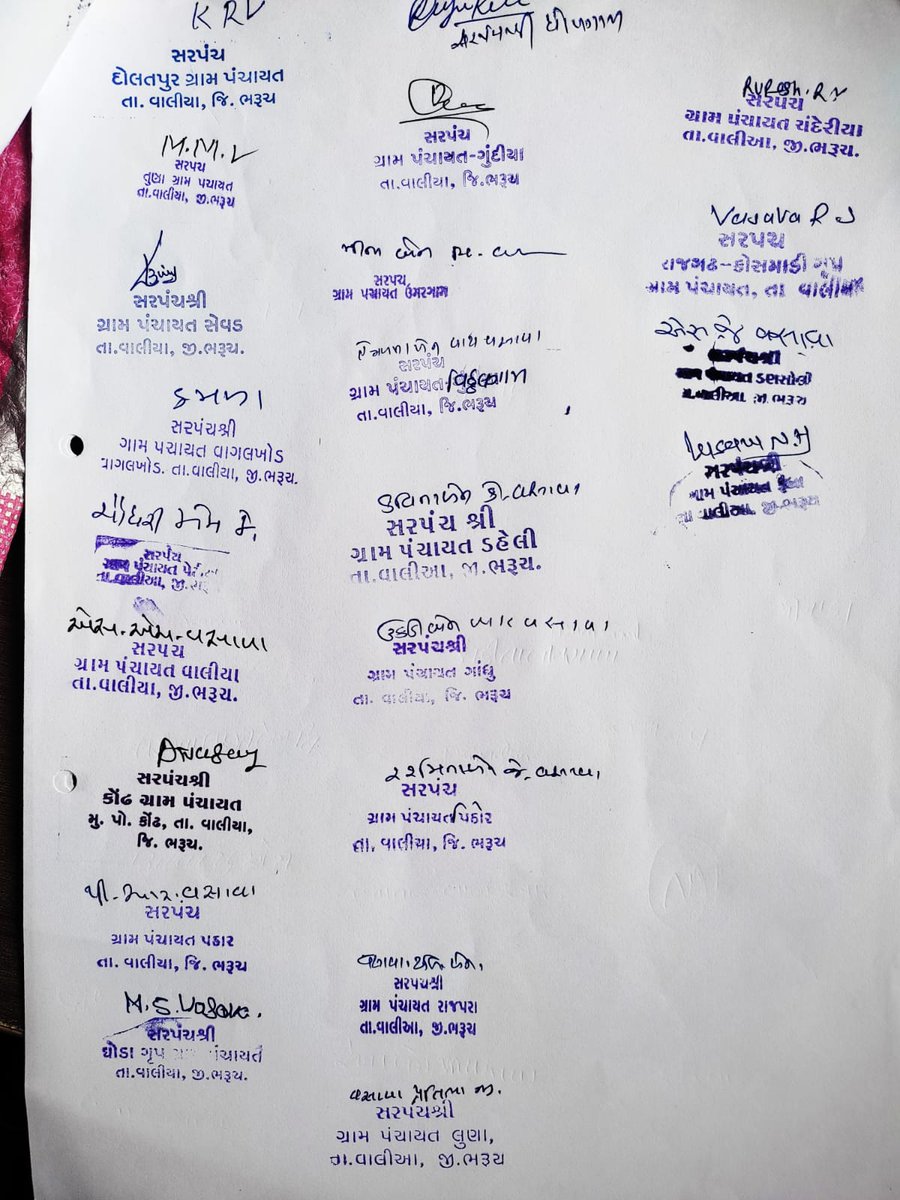 KRV
સરપંચ
દોલતપુર ગ્રામ પંચાયત
તા. વાલીયા, જિ. ભરૂચ
M.M.V
સરપંચ
તુણા ગ્રામ પંચાયત
તા.વાલીયા, જી.ભરૂચ
સરપંચશ્રી
ગ્રામ પંચાયત સેવડ
તા.વાલીયા, જી.ભરૂચ.
કમળા
સરપંચશ્રી
ગામ પચાયત વાગલખોડ
વાગલખોડ. તા.વાલીયા, જી.ભરૂચ.
ચૌધરી
સરપંચ
ગ્રામ પંચાયત
તા.વાલીઆ, જી.
એસ.એમ.વસાવા
સરપંચ
ગ્રામ પંચાયત વાલીયા
તા.વાલીયા, જી.ભરૂચ.
સરપંચશ્રી
કોંઢ ગ્રામ પંચાયત
મુ. પો. કોંઢ, તા. વાલીયા,
જિ. ભરૂચ.
પી.આર.વસાવા
સરપંચ
ગ્રામ પંચાયત પઠાર
તા. વાલીયા, જિ. ભરૂચ
M.S.Vasava.
સરપંચશ્રી
ઘોડા ગૃપ ગ્રામ પંચાયત
તા.વાલીયા, જી.ભરૂચ.
સરપંચ
ગ્રામ પંચાયત-ગુંદીયા
તા.વાલીયા, જિ. ભરૂચ
સરપંચ
ગ્રામ પંચાયત ઉમરગામ
સરપંચ
ગ્રામ પંચાયત-વિઠ્ઠલગામ
તા.વાલીયા, જિ. ભરૂચ
કવિતાબેન કે.વસાવા
સરપંચ શ્રી
ગ્રામ પંચાયત ડહેલી
તા.વાલીઆ, જી.ભરૂચ.
ઉકડીબેન આર વસાવા
સરપંચશ્રી
ગ્રામ પંચાયત ગાંધુ
તા. વાલીયા, જિ. ભરૂચ
રશ્મિતાબેન જે.વસાવા
સરપંચ
ગ્રામ પંચાયત પિઠોર
તા. વાલીયા, જિ. ભરૂચ
સરપંચશ્રી
ગ્રામ પંચાયત રાજપરા
તા.વાલીઆ, જી.ભરૂચ
વસાવા પ્રતિભા
સરપંચશ્રી
ગ્રામ પંચાયત લુણા,
તા.વાલીઆ, જી.ભરૂચ
સરપંચ
ગ્રામ પંચાયત ચંદેરીયા
તા.વાલીઆ, જી.ભરૂચ.
Vasava R J
સરપંચ
રાજગઢ-કોસમાડી ગૃપ
ગ્રામ પંચાયત, તા વાલીયા
એસ જે વસાવા
સરપંચશ્રી
ગ્રામ પંચાયત ડણસોલી
તા.વાલીઆ જી.ભરૂચ
N.H
સરપંચશ્રી
ગ્રામ પંચાયત
તા વાલીઆ. જી-ભરૂચ